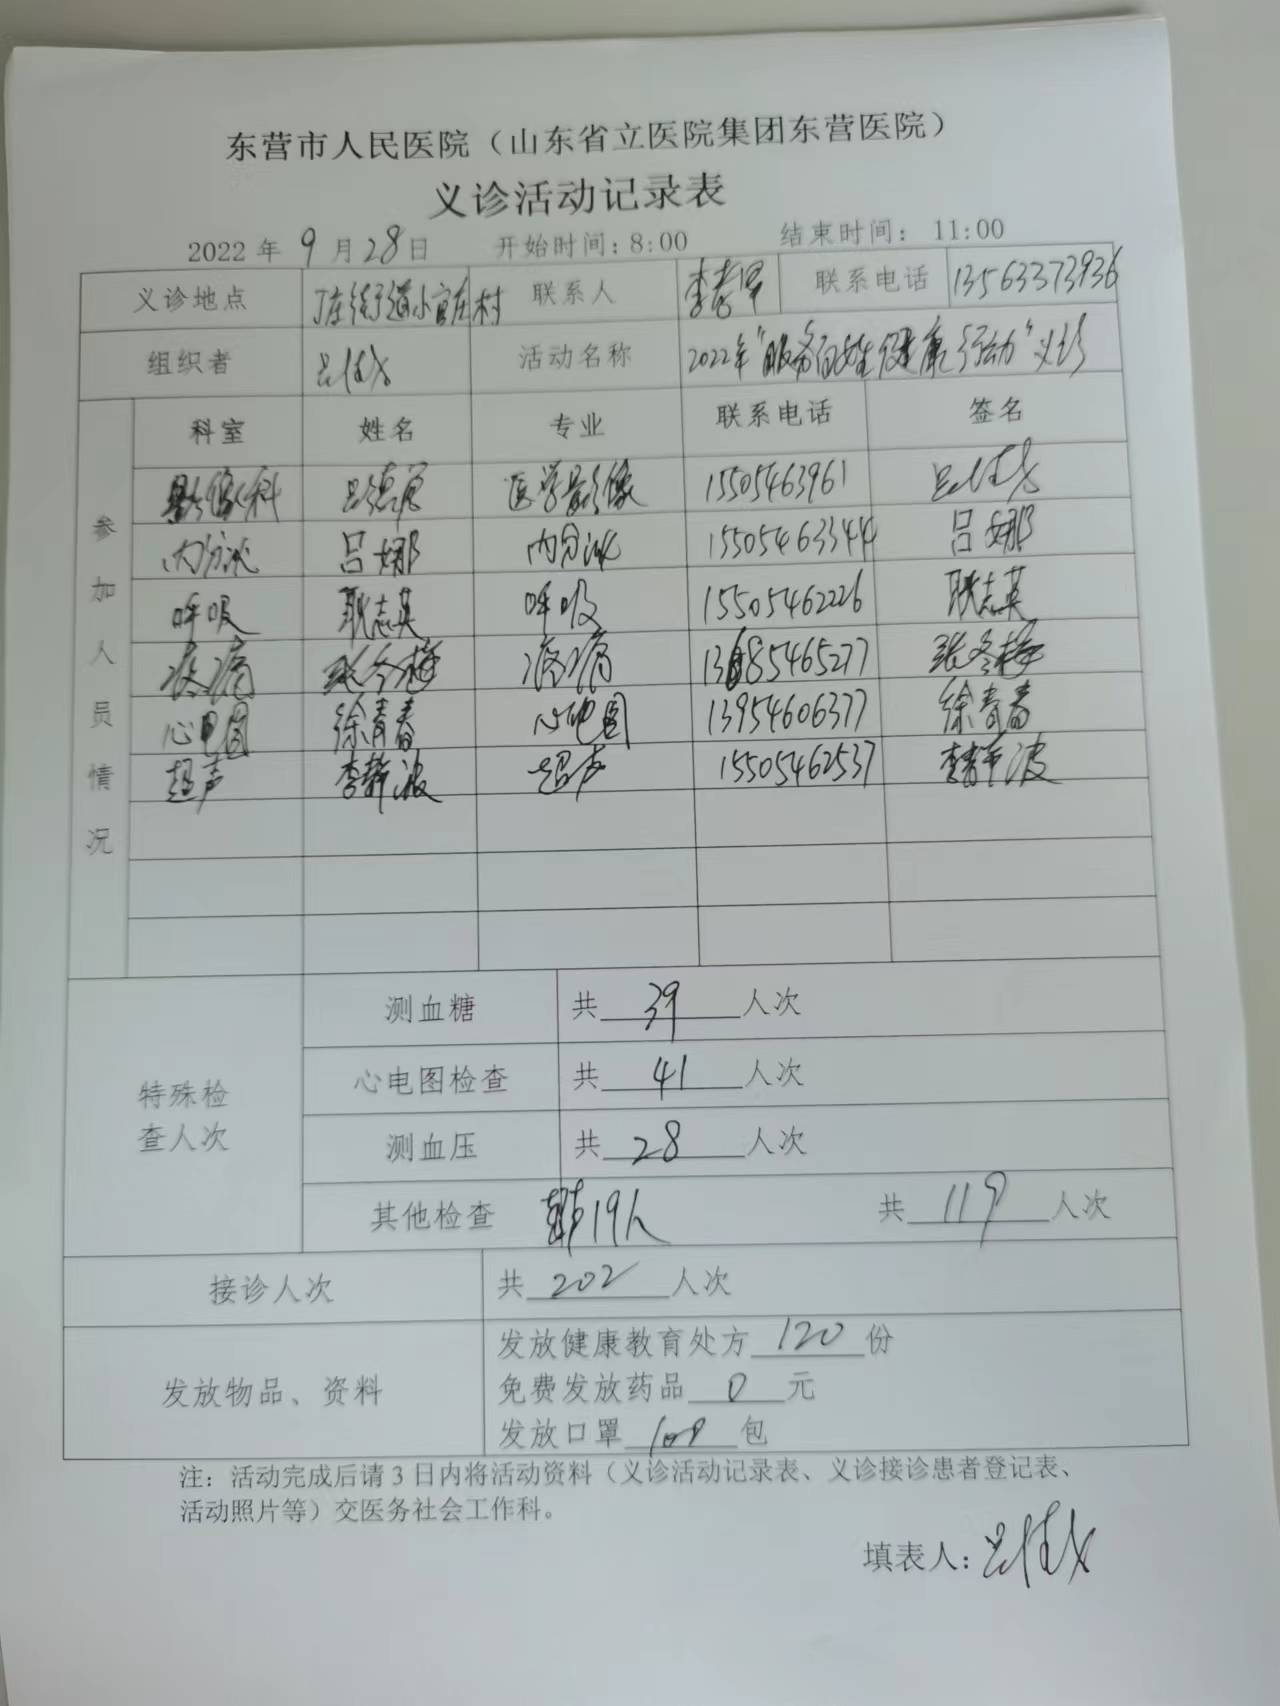 东营市人民医院（山东省立医院集团东营医院）
义诊活动记录表
2022 年 9 月 28 日 开始时间: 8:00 结束时间: 11:00
义诊地点 丁庄街道小官庄村 联系人 联系电话 13563373936
组织者 活动名称 2022年"服务百姓健康行动"义诊
参加人员情况
科室 姓名 专业 联系电话 签名
影像科 医学影像 15505463961
内分泌 吕娜 内分泌 15505463344 吕娜
呼吸 耿志英 呼吸 15505462226 耿志英
疼痛 张冬梅 疼痛 13685465277 张冬梅
心电图 徐青春 心电图 13954606377 徐青春
超声 李静波 超声 15505462537 李静波
特殊检查人次
测血糖 共 39 人次
心电图检查 共 41 人次
测血压 共 28 人次
其他检查 19人 共 119 人次
接诊人次 共 202 人次
发放物品、资料
发放健康教育处方 120 份
免费发放药品 0 元
发放口罩 100 包
注: 活动完成后请 3 日内将活动资料（义诊活动记录表、义诊接诊患者登记表、
活动照片等）交医务社会工作科。
填表人: